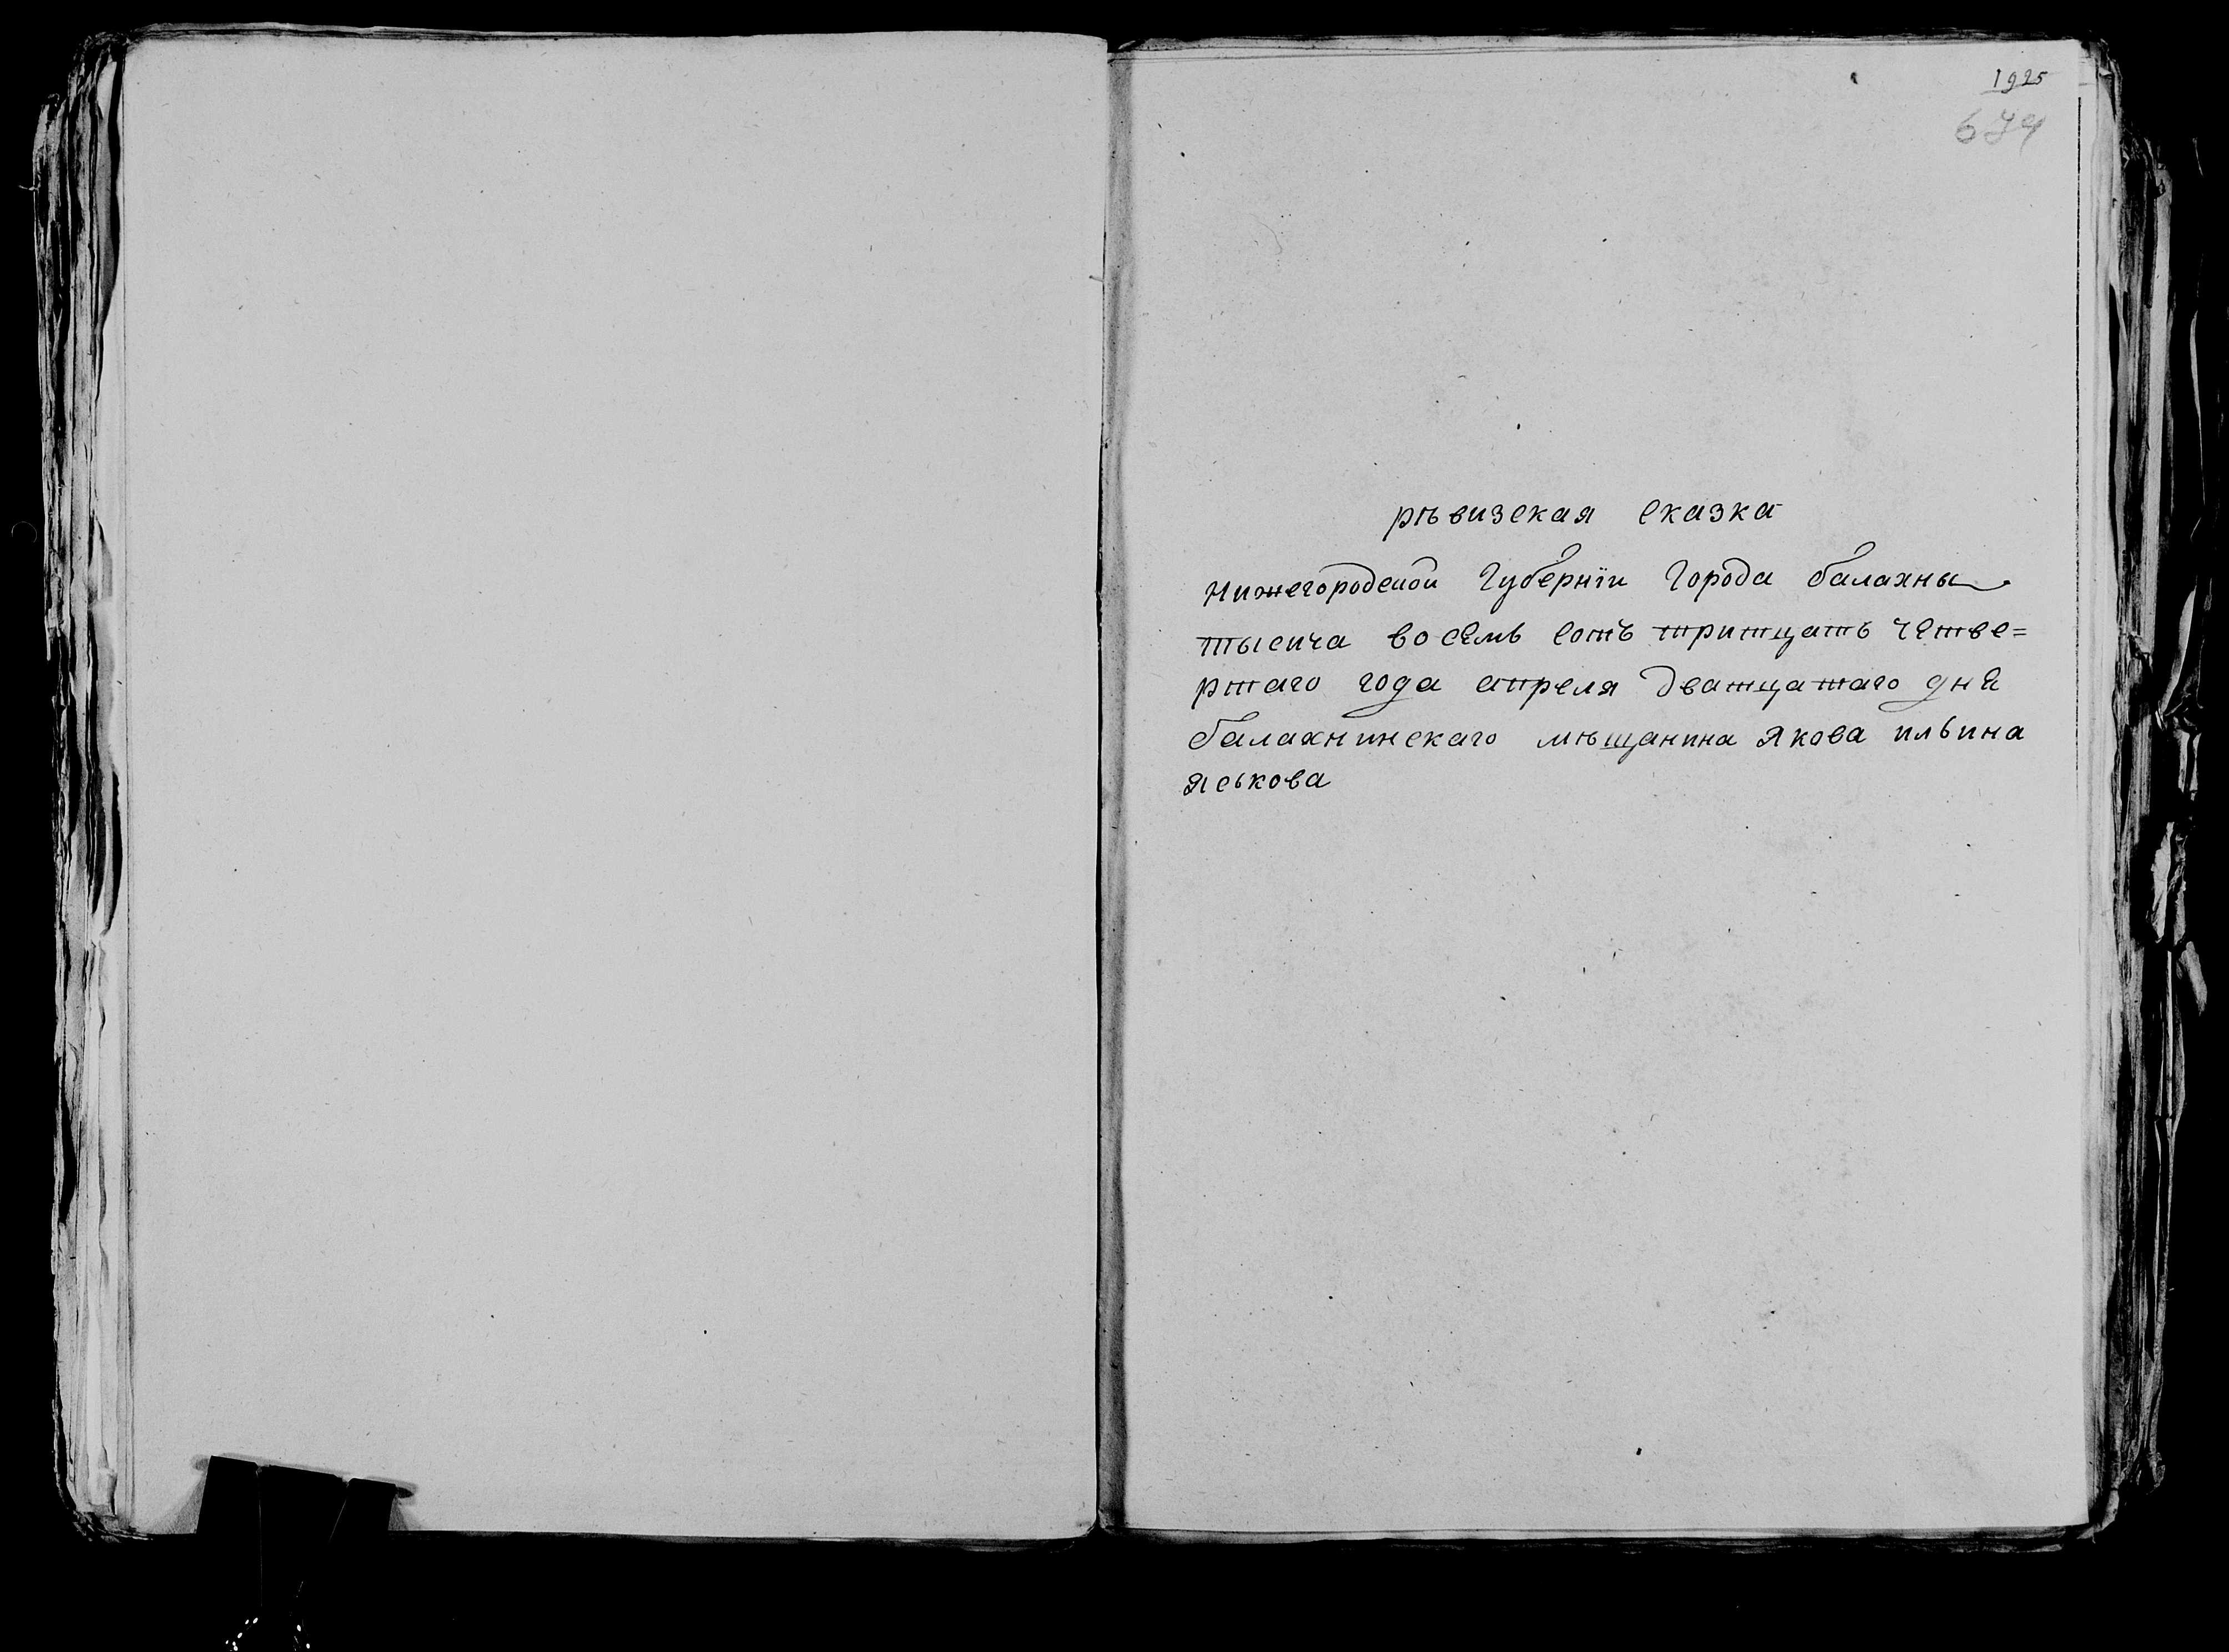 1925
674
рѣвизская сказка
Нижегородской Губернїи Города балахны
тысича восемь сотъ тритцать четве=
ртаго года апреля дватцатаго дня
балахнинскаго мѣщанина Якова ильина
Яськова